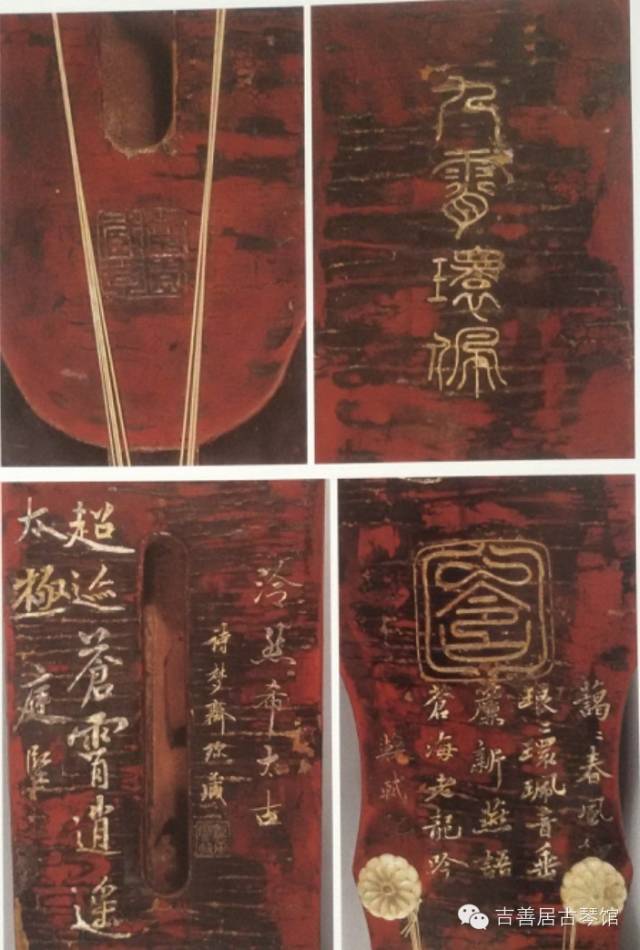 九霄環佩
泠然希太古
詩夢齋珍藏
超迹蒼霄逍遥
太極 庭堅
包含
藹〻春風細
琅〻環珮音垂
簾新燕語
蒼海老龍吟
蘇軾記
吉善居古琴馆